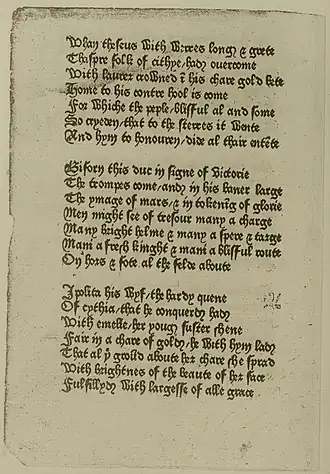 Whan theseus With Werres long & grete
Thaspre folk of cithye had ouercome
With laurer crowned ī his chare gold bete
Home to his contre hool is come
For Whiche the peple blisful al and some
So cryeden / that to the sterres it Wente
And hym to honouren / dide al thair entēte
Biforn this duc in signe of victorie
The trompes come / and in his baner large
The ymage of mars / & in tokenīg of glorie
Men might see of tresour many a charge
Many bright helme & many a spere & targe
Mani a fresh knight & mani a blisful route
On hors & fote al the felde aboute
Ipolita his Wyf / the hardy quene
Of cythia / that he conquerd had
With emelie / her youg suster shene
Fair in a chare of gold / he With hym lad
That al þe groūd aboute her chare she sprad
With brightnes of the beaute of her face
Fulfilled With largesse of alle grace